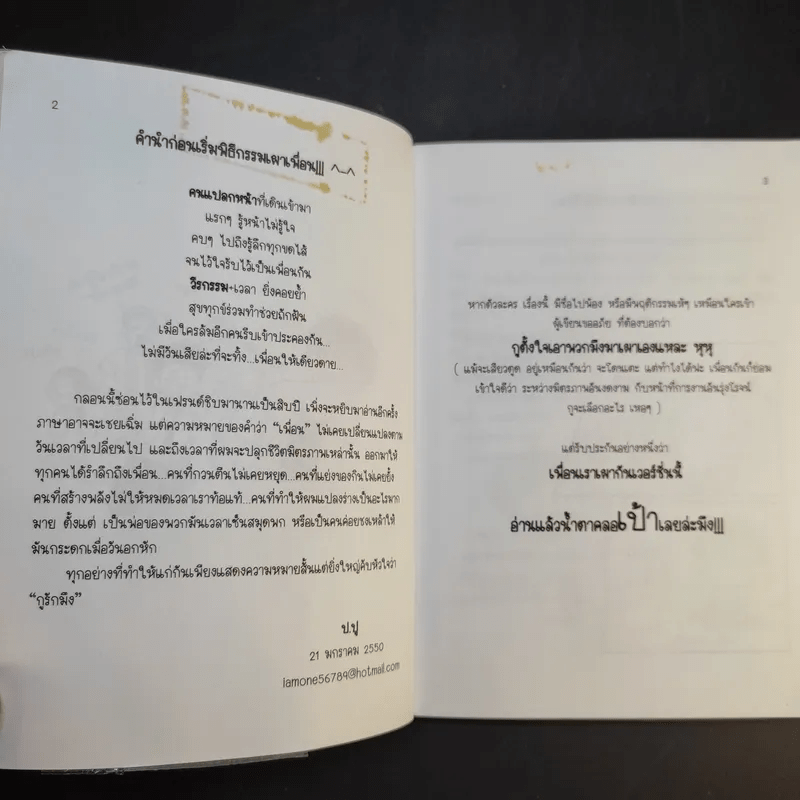 2
คำนำก่อนเริ่มพิธีกรรมเผาเพื่อน||| ^_^
คนแปลกหน้าที่เดินเข้ามา
แรกๆ รู้หน้าไม่รู้ใจ
คบๆ ไปถึงรู้ลึกทุกขดไส้
จนไว้ใจรับไว้เป็นเพื่อนกัน
วีรกรรม+เวลา ยิ่งคอยย้ำ
สุขทุกข์ร่วมทำช่วยถักฝัน
เมื่อใครล้มอีกคนรีบเข้าประคองกัน...
ไม่มีวันเสียล่ะที่จะทิ้ง...เพื่อนให้เดียวดาย...
กลอนนี้ซ่อนไว้ในเฟรนด์ชิบมานานเป็นสิบปี เพิ่งจะหยิบมาอ่านอีกครั้ง
ภาษาอาจจะเชยเฉิ่ม แต่ความหมายของคำว่า “เพื่อน” ไม่เคยเปลี่ยนแปลงตาม
วันเวลาที่เปลี่ยนไป และถึงเวลาที่ผมจะปลุกชีวิตมิตรภาพเหล่านั้น ออกมาให้
ทุกคนได้รำลึกถึงเพื่อน...คนที่กวนตีนไม่เคยหยุด...คนที่แย่งของกินไม่เคยยั้ง
คนที่สร้างพลังไม่ให้หมดเวลาเราท้อแท้...คนที่ทำให้ผมแปลงร่างเป็นอะไรมาก
มาย ตั้งแต่ เป็นพ่อของพวกมันเวลาเซ็นสมุดพก หรือเป็นคนคอยชงเหล้าให้
มันกระดกเมื่อวันอกหัก
ทุกอย่างที่ทำให้แก่กันเพียงแสดงความหมายสั้นแต่ยิ่งใหญ่คับหัวใจว่า
“กูรักมึง”
ป.ปู
21 มกราคม 2550
iamone56789@hotmail.com
หากตัวละคร เรื่องนี้ มีชื่อไปพ้อง หรือมีพฤติกรรมเห้ๆ เหมือนใครเข้า
ผู้เขียนขออภัย ที่ต้องบอกว่า
กูตั้งใจเอาพวกมึงมาเผาเองแหละ หุหุ
( แม้จะเสียวตูด อยู่เหมือนกันว่า จะโดนเตะ แต่ทำไงได้ฟะ เพื่อนกันก็ย่อม
เข้าใจดีว่า ระหว่างมิตรภาพอันงดงาม กับหน้าที่การงานอันรุ่งโรจน์
กูจะเลือกอะไร เหอๆ )
แต่รับประกันอย่างหนึ่งว่า
เพื่อนเราเผากันเวอร์ชั่นนี้
อ่านแล้วน้ำตาคลอเป้าเลยล่ะมึง|||